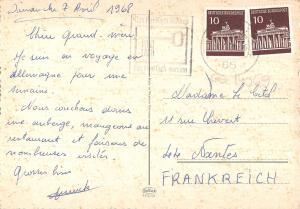 Dimanche 7 Avril 1968
Chère Grand-mère
Je suis en voyage en
Allemagne pour une
semaine.
Nous couchons dans
une auberge, mangeons au
restaurant et faisons de
nombreuses visites
Grosses bises
10
10
DEUTSCHE BUNDESPOST
DEUTSCHE BUNDESPOST
65
Madame Le
11 rue
44 Nantes
FRANKREICH